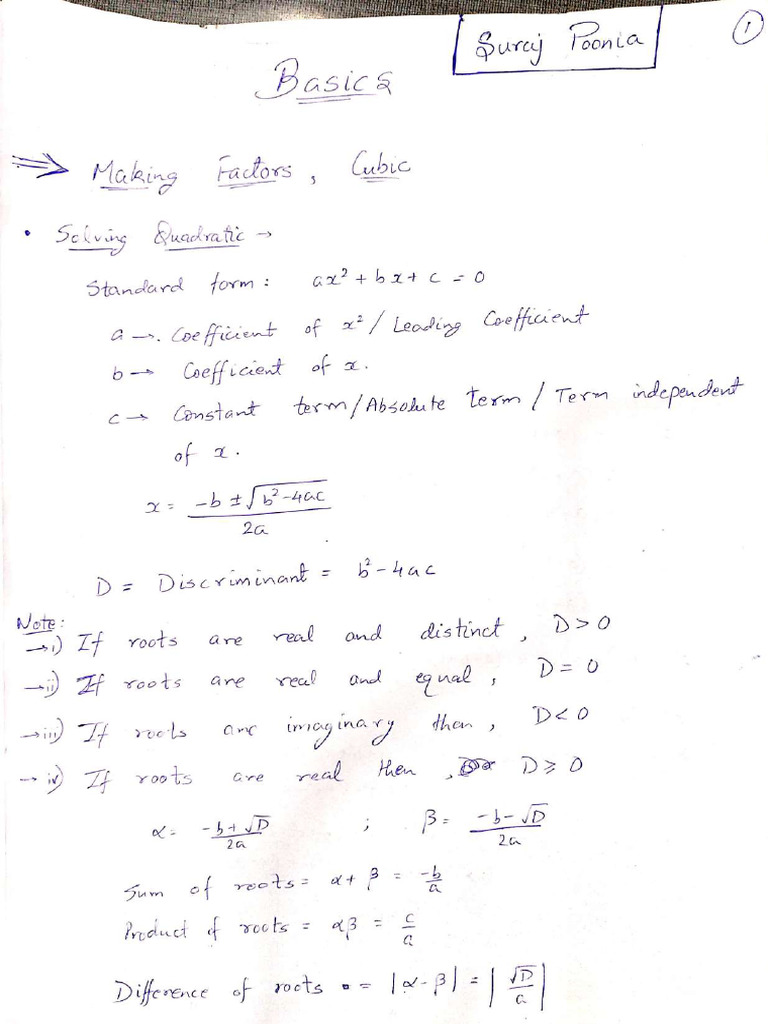 Suraj Poonia
1
Basics
⇒ Making Factors, Cubic
• Solving Quadratic →
Standard form: ax² + bx + c = 0
a →. Coefficient of x² / Leading Coefficient
b → Coefficient of x.
c → Constant term/Absolute term / Term independent
of x.
x = (-b ± √(b²-4ac)) / 2a
D = Discriminant = b² - 4ac
Note:
→ i) If roots are real and distinct, D > 0
→ ii) If roots are real and equal, D = 0
→ iii) If roots are imaginary then, D < 0
→ iv) If roots are real then, D ≥ 0
α = (-b + √D) / 2a ; β = (-b - √D) / 2a
Sum of roots = α + β = -b/a
Product of roots = αβ = c/a
Difference of roots = |α - β| = |√D / a|